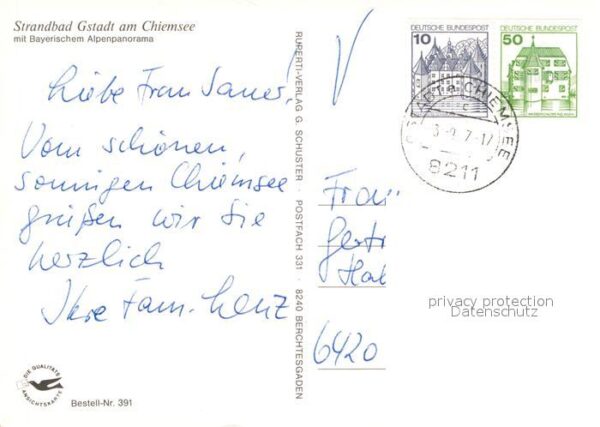 Strandbad Gstadt am Chiemsee
mit Bayerischem Alpenpanorama
Liebe Frau Sauer!
Vom schönen,
sonnigen Chiemsee
grüßen wir Sie
herzlich
Ihre Fam. Lenz
DIE QUALITÄTS
ANSICHTSKARTE
Bestell-Nr. 391
RUPERTI-VERLAG G. SCHUSTER · POSTFACH 331 · 8240 BERCHTESGADEN
DEUTSCHE BUNDESPOST
10
DEUTSCHE BUNDESPOST
50
CHIEMSEE
8211
Frau
Gertr
6420
privacy protection
Datenschutz